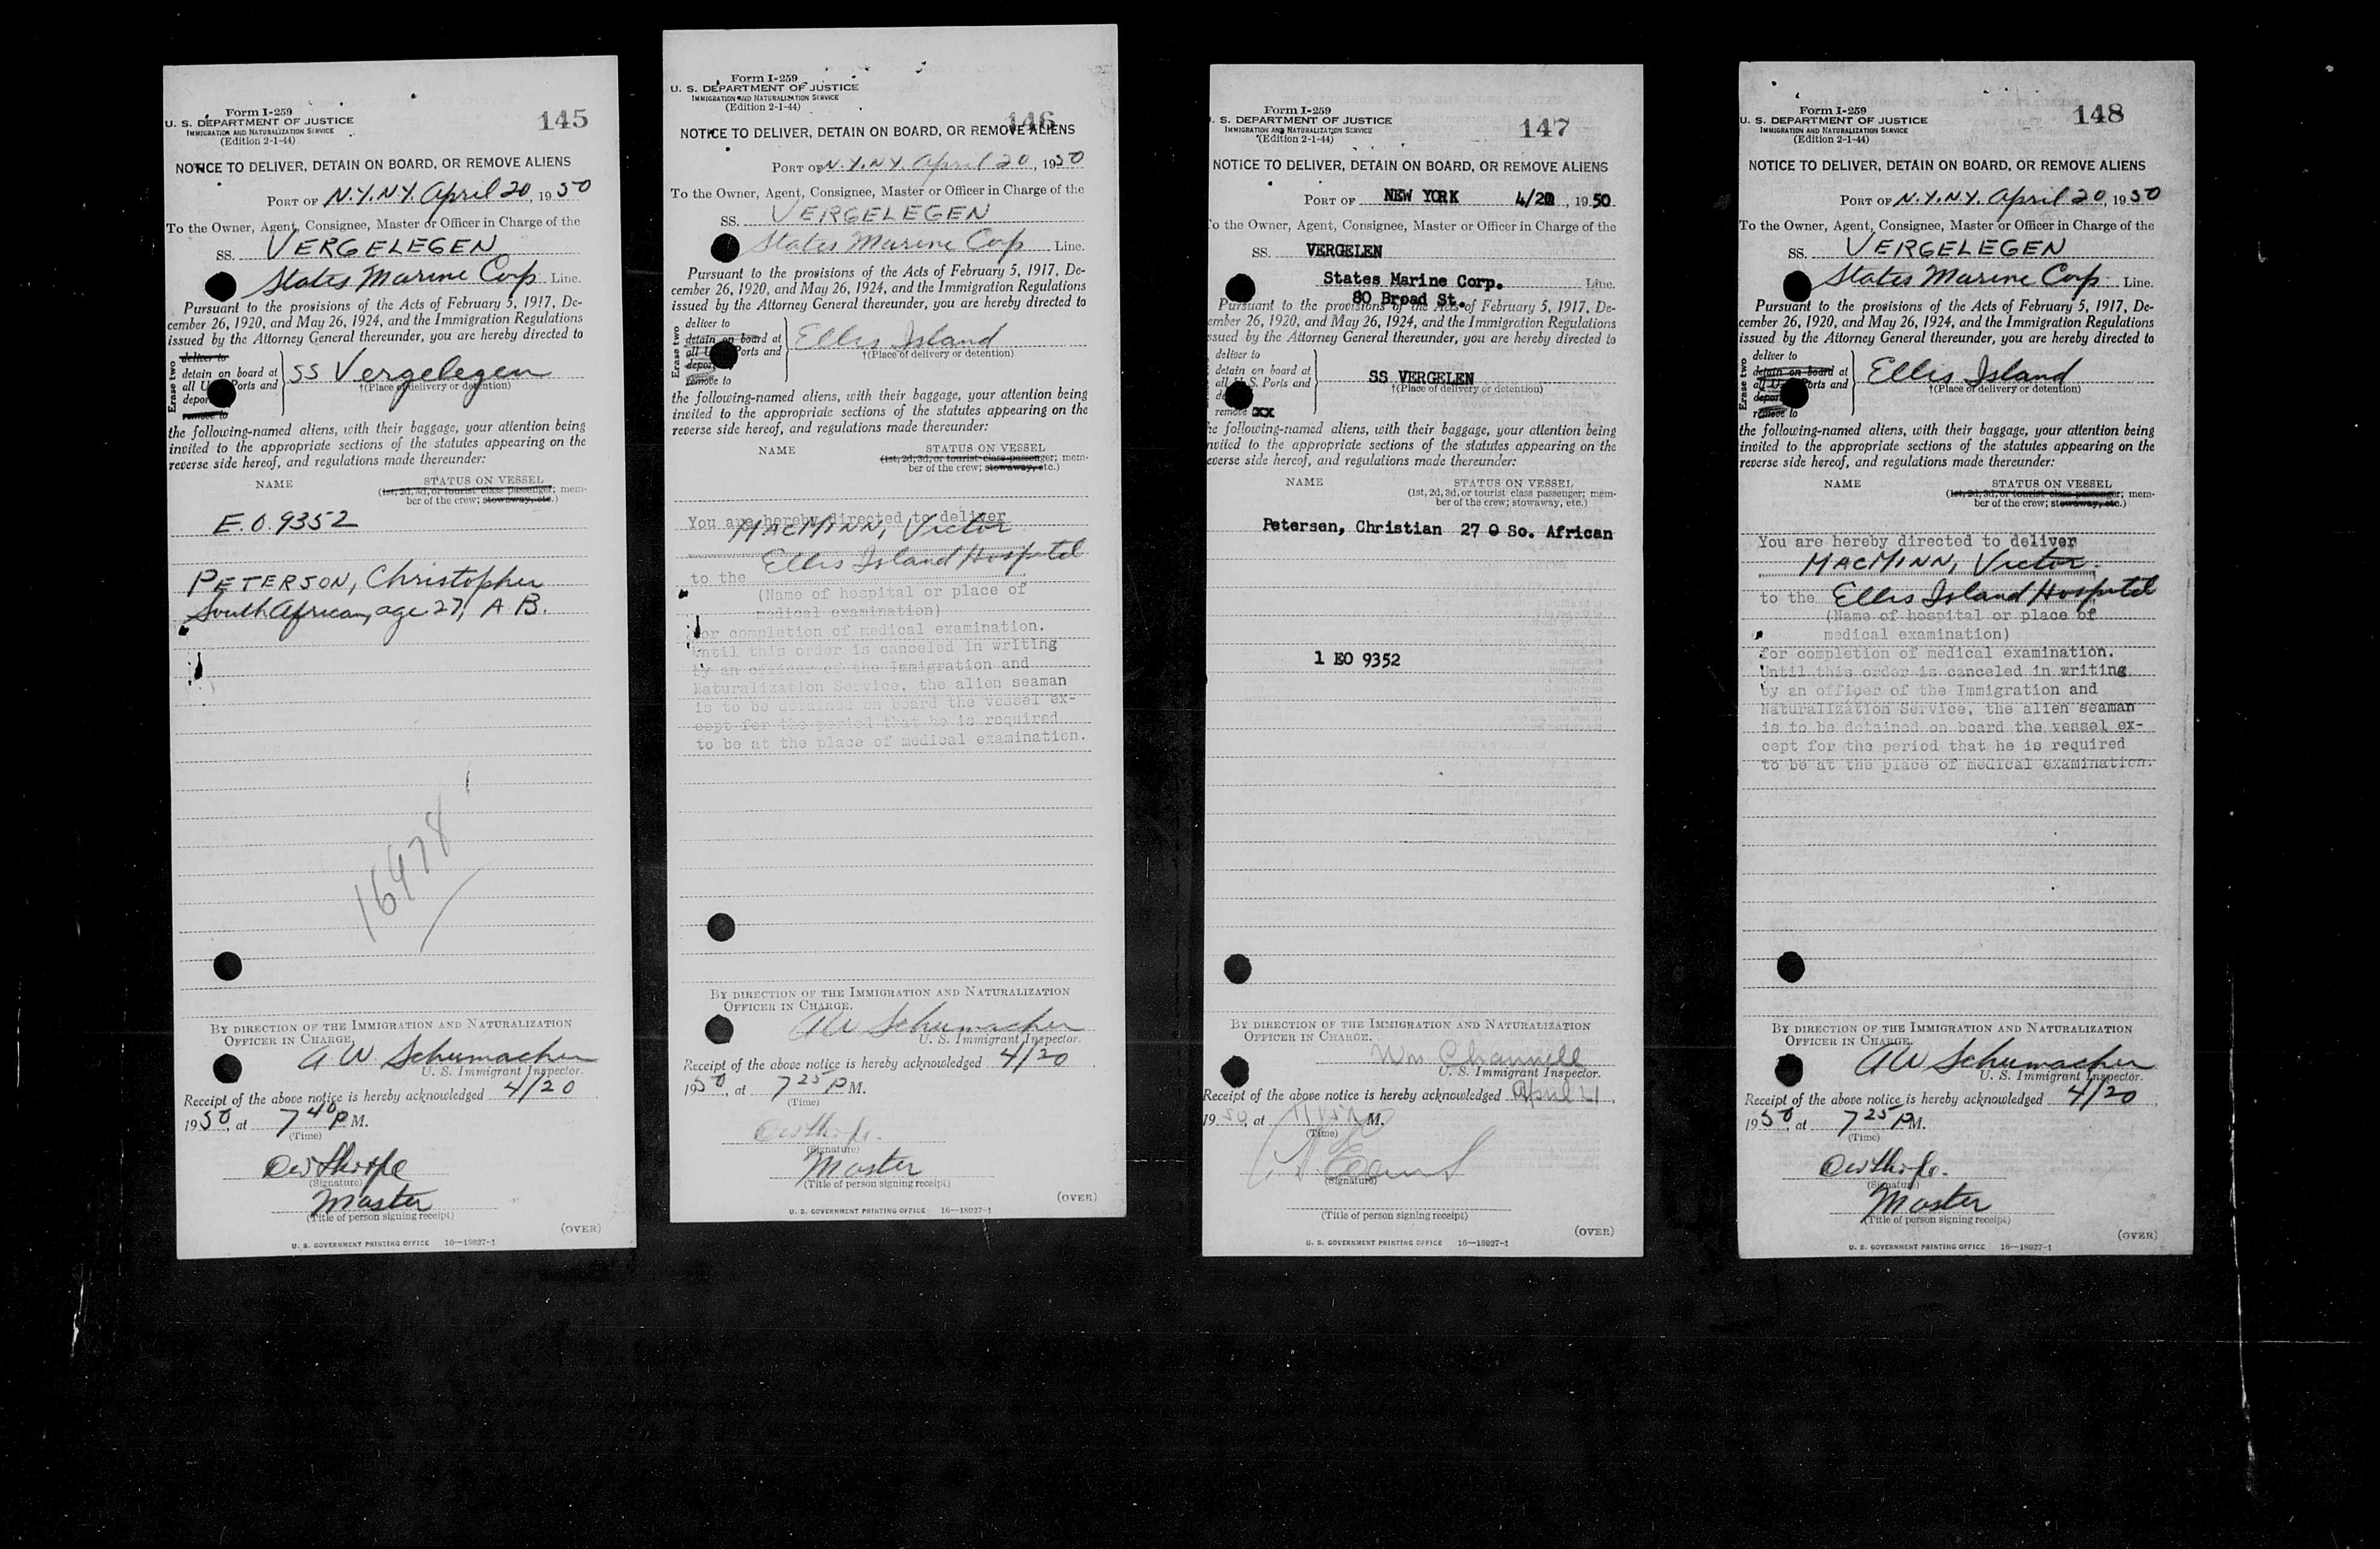 Form I-259
U. S. DEPARTMENT OF JUSTICE
IMMIGRATION AND NATURALIZATION SERVICE
(Edition 2-1-44)
145
NOTICE TO DELIVER, DETAIN ON BOARD, OR REMOVE ALIENS
PORT OF N.Y.N.Y. April 20, 1950
To the Owner, Agent, Consignee, Master or Officer in Charge of the
SS. VERGELEGEN
States Marine Corp Line.
Pursuant to the provisions of the Acts of February 5, 1917, De-
cember 26, 1920, and May 26, 1924, and the Immigration Regulations
issued by the Attorney General thereunder, you are hereby directed to
Erase two
deliver to
detain on board at
all U Ports and
depor
remove to
SS Vergelegen
†(Place of delivery or detention)
the following-named aliens, with their baggage, your attention being
invited to the appropriate sections of the statutes appearing on the
reverse side hereof, and regulations made thereunder:
NAME STATUS ON VESSEL
(1st, 2d, 3d, or tourist class passenger; mem-
ber of the crew; stowaway, etc.)
E.O. 9352
PETERSON, Christopher
South African, age 27, A B.
16478
BY DIRECTION OF THE IMMIGRATION AND NATURALIZATION
OFFICER IN CHARGE.
A. W. Schumacher
U. S. Immigrant Inspector.
Receipt of the above notice is hereby acknowledged 4/20
1950, at 7 40 P M.
(Time)
(Signature)
Master
(Title of person signing receipt)
(OVER)
U. S. GOVERNMENT PRINTING OFFICE 16—18927-1
Form I-259
U. S. DEPARTMENT OF JUSTICE
IMMIGRATION AND NATURALIZATION SERVICE
(Edition 2-1-44)
146
NOTICE TO DELIVER, DETAIN ON BOARD, OR REMOVE ALIENS
PORT OF N.Y.N.Y. April 20, 1950
To the Owner, Agent, Consignee, Master or Officer in Charge of the
SS. VERGELEGEN
States Marine Corp Line.
Pursuant to the provisions of the Acts of February 5, 1917, De-
cember 26, 1920, and May 26, 1924, and the Immigration Regulations
issued by the Attorney General thereunder, you are hereby directed to
Erase two
deliver to
detain on board at
all U Ports and
depor
remove to
Ellis Island
†(Place of delivery or detention)
the following-named aliens, with their baggage, your attention being
invited to the appropriate sections of the statutes appearing on the
reverse side hereof, and regulations made thereunder:
NAME STATUS ON VESSEL
(1st, 2d, 3d, or tourist class passenger; mem-
ber of the crew; stowaway, etc.)
You are hereby directed to deliver
MACMINN, Victor
to the Ellis Island Hospital
(Name of hospital or place of
medical examination)
for completion of medical examination.
Until this order is canceled in writing
by an officer of the Immigration and
Naturalization Service, the alien seaman
is to be detained on board the vessel ex-
cept for the period that he is required
to be at the place of medical examination.
BY DIRECTION OF THE IMMIGRATION AND NATURALIZATION
OFFICER IN CHARGE.
AW Schumacher
U. S. Immigrant Inspector.
Receipt of the above notice is hereby acknowledged 4/20
1950, at 7 25 P M.
(Time)
(Signature)
Master
(Title of person signing receipt)
(OVER)
U. S. GOVERNMENT PRINTING OFFICE 16—18927-1
Form I-259
. S. DEPARTMENT OF JUSTICE
IMMIGRATION AND NATURALIZATION SERVICE
(Edition 2-1-44)
147
NOTICE TO DELIVER, DETAIN ON BOARD, OR REMOVE ALIENS
PORT OF NEW YORK 4/20, 1950
o the Owner, Agent, Consignee, Master or Officer in Charge of the
SS. VERGELEN
States Marine Corp. Line.
80 Broad St.
Pursuant to the provisions of the Acts of February 5, 1917, De-
ember 26, 1920, and May 26, 1924, and the Immigration Regulations
ssued by the Attorney General thereunder, you are hereby directed to
deliver to
detain on board at
all U. S. Ports and
de
remove xx
SS VERGELEN
†(Place of delivery or detention)
he following-named aliens, with their baggage, your attention being
nvited to the appropriate sections of the statutes appearing on the
everse side hereof, and regulations made thereunder:
NAME STATUS ON VESSEL
(1st, 2d, 3d, or tourist class passenger; mem-
ber of the crew; stowaway, etc.)
Petersen, Christian 27 O So. African
1 EO 9352
BY DIRECTION OF THE IMMIGRATION AND NATURALIZATION
OFFICER IN CHARGE.
Wm Channell
U. S. Immigrant Inspector.
Receipt of the above notice is hereby acknowledged April 21
1950, at M.
(Time)
(Signature)
(Title of person signing receipt)
(OVER)
U. S. GOVERNMENT PRINTING OFFICE 16—18927-1
Form I-259
U. S. DEPARTMENT OF JUSTICE
IMMIGRATION AND NATURALIZATION SERVICE
(Edition 2-1-44)
148
NOTICE TO DELIVER, DETAIN ON BOARD, OR REMOVE ALIENS
PORT OF N.Y.N.Y. April 20, 1950
To the Owner, Agent, Consignee, Master or Officer in Charge of the
SS. VERGELEGEN
States Marine Corp Line.
Pursuant to the provisions of the Acts of February 5, 1917, De-
cember 26, 1920, and May 26, 1924, and the Immigration Regulations
issued by the Attorney General thereunder, you are hereby directed to
Erase two
deliver to
detain on board at
all U orts and
depor
remove to
Ellis Island
†(Place of delivery or detention)
the following-named aliens, with their baggage, your attention being
invited to the appropriate sections of the statutes appearing on the
reverse side hereof, and regulations made thereunder:
NAME STATUS ON VESSEL
(1st, 2d, 3d, or tourist class passenger; mem-
ber of the crew; stowaway, etc.)
You are hereby directed to deliver
MACMINN, Victor.
to the Ellis Island Hospital
(Name of hospital or place of
medical examination)
for completion of medical examination.
Until this order is canceled in writing
by an officer of the Immigration and
Naturalization Service, the alien seaman
is to be detained on board the vessel ex-
cept for the period that he is required
to be at the place of medical examination.
BY DIRECTION OF THE IMMIGRATION AND NATURALIZATION
OFFICER IN CHARGE.
AW Schumacher
U. S. Immigrant Inspector.
Receipt of the above notice is hereby acknowledged 4/20
1950, at 7 25 PM.
(Time)
(Signature)
Master
(Title of person signing receipt)
(OVER)
U. S. GOVERNMENT PRINTING OFFICE 16—18927-1